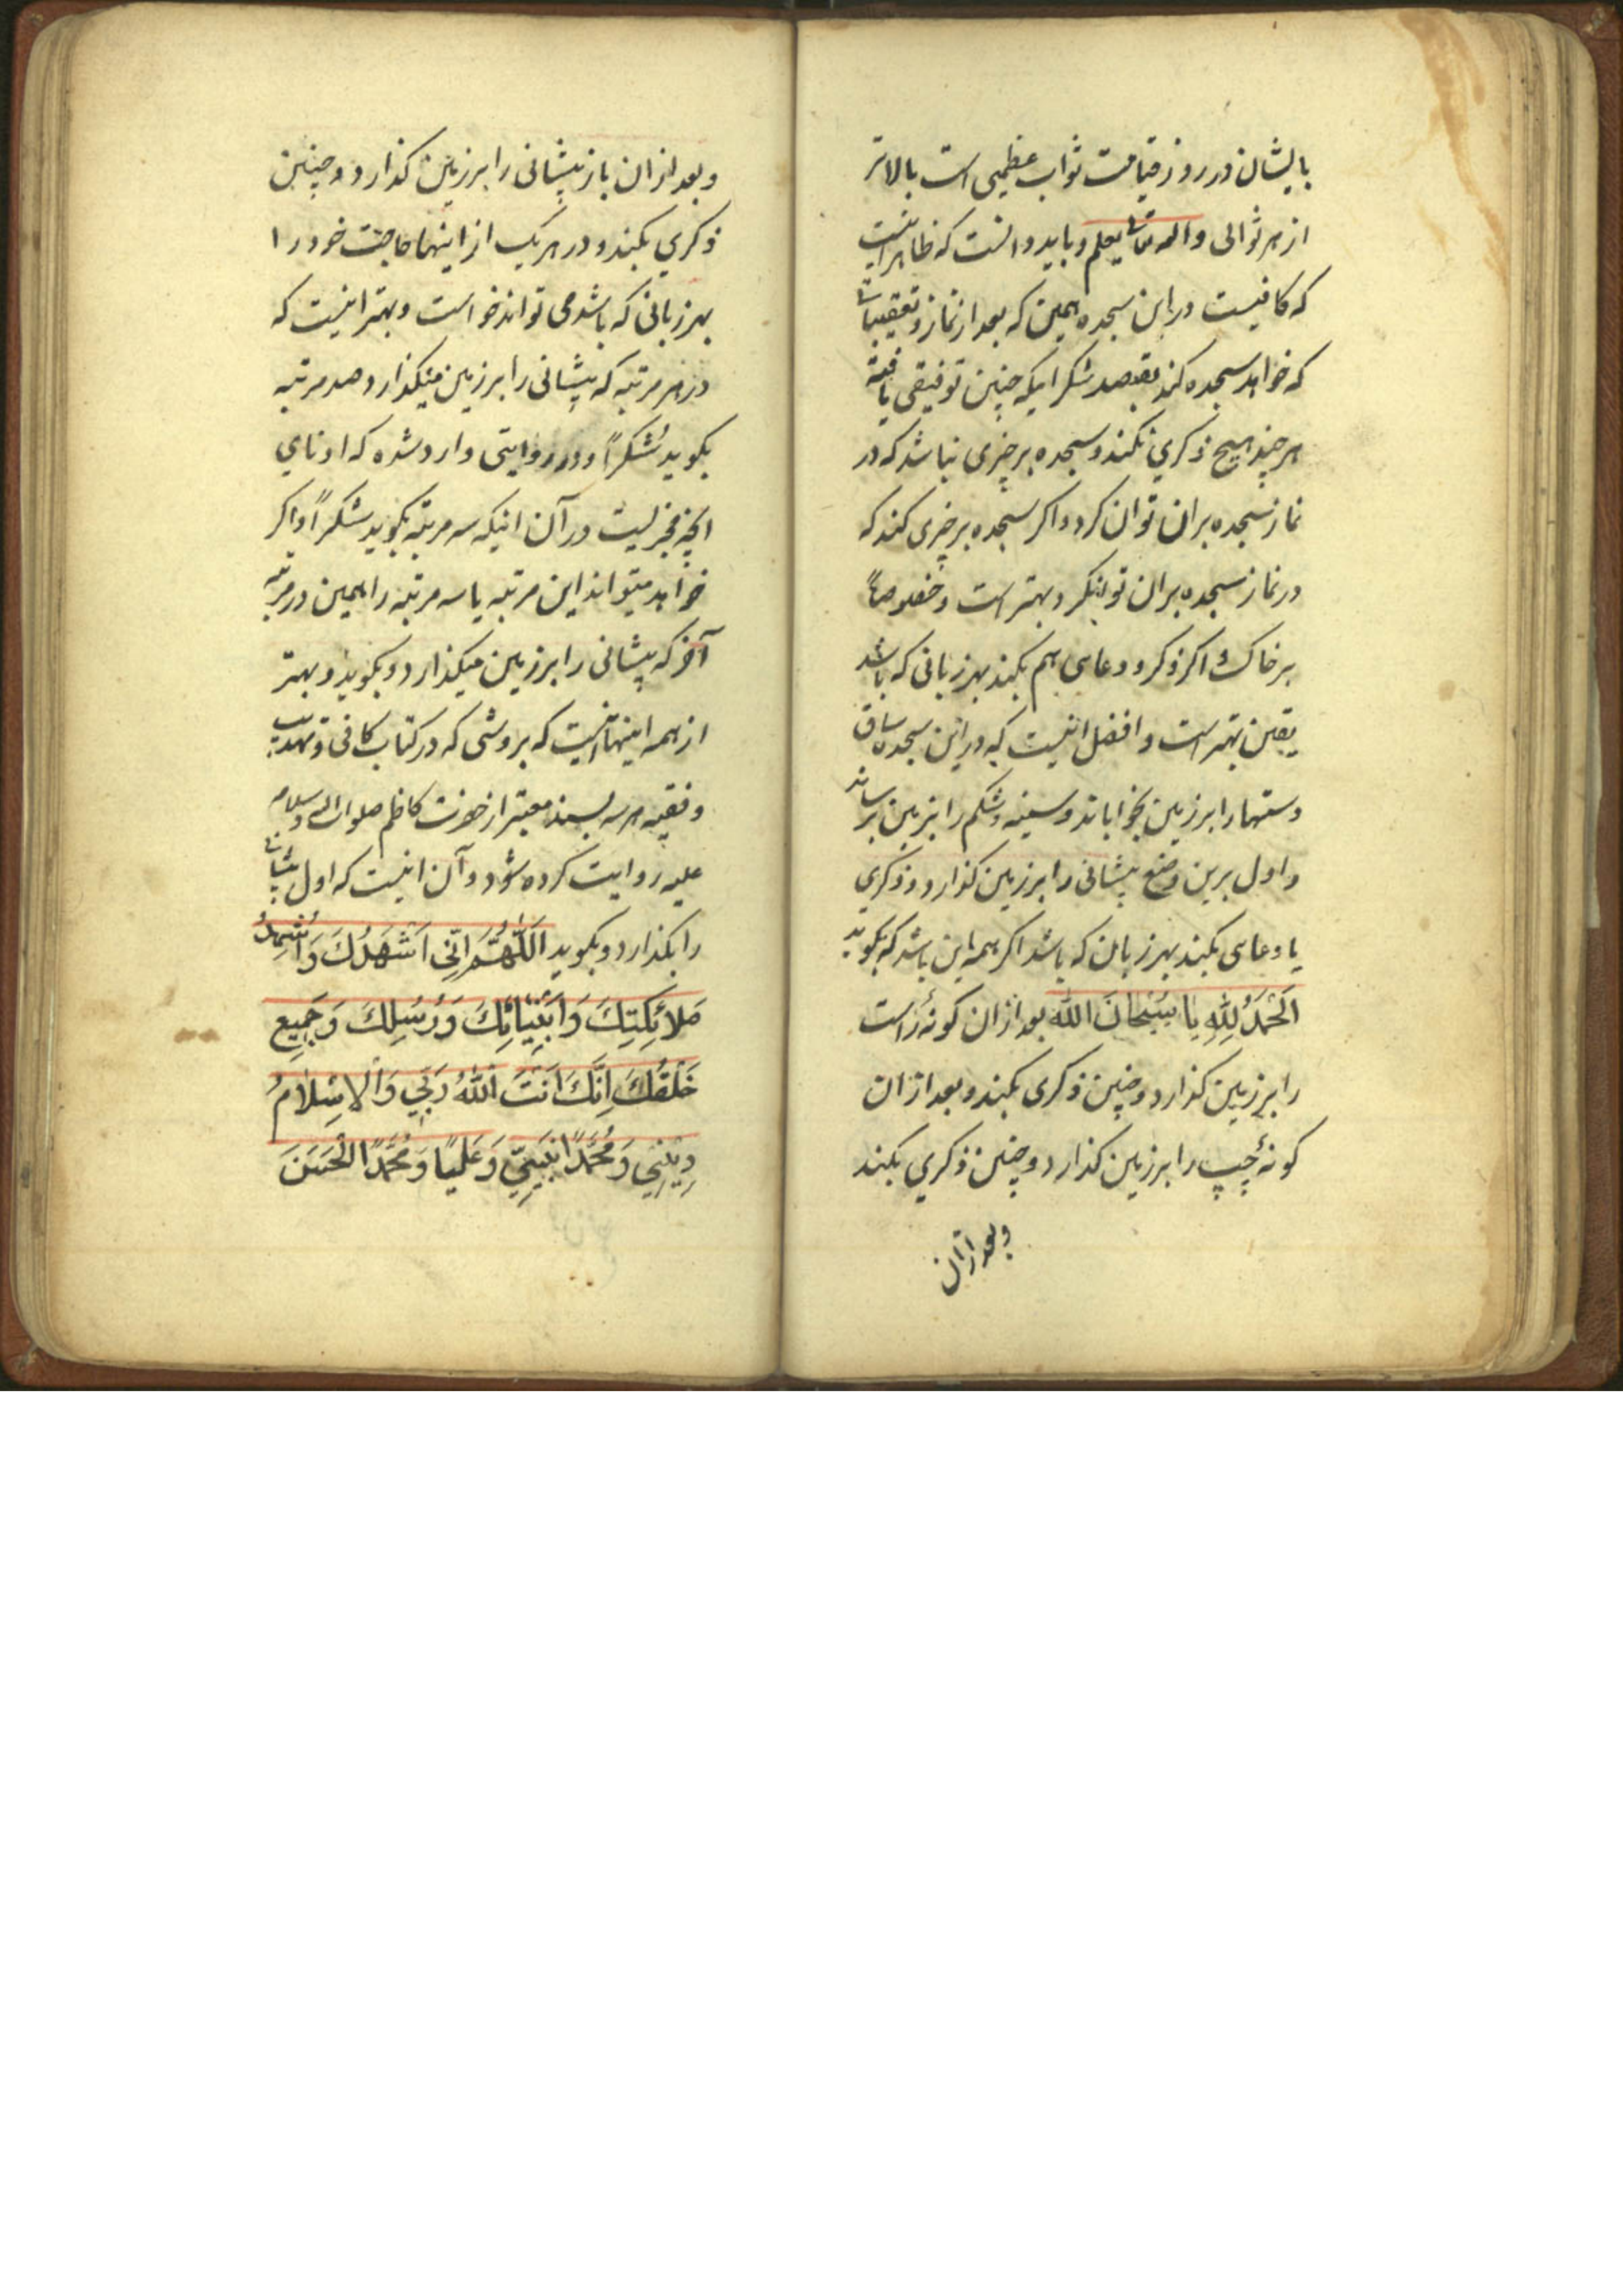 بایشان در روز قیامت ثواب عظیمی است بالاتر
از هر ثوابی والله تعالی یعلم و باید دانست که ظاهر اینست
که کافیست در این سجده همین که بعد از نماز و تعقیبات
که خواهد سجده کند بقصد شکر اینکه چنین توفیقی یافته
هر چند هیچ ذکری نکند و سجده بر چیزی نباشد که در
نماز سجده بران توان کرد و اکر سجده بر چیزی کند که
در نماز سجده بران توان کرد بهتر است و خصوصاً
بر خاک و اکر ذکر و دعایی هم بکند بهر زبانی که باشد
یقین بهتر است و افضل اینست که در این سجده ساق
دستها را بر زمین بخواباند و سینه و شکم را بزمین برساند
و اول برین وضع پیشانی را بر زمین کذارد و ذکری
یا دعایی بکند بهر زبان که باشد اکر همه این باشد که بکوید
اَلْحَمْدُ لِلّٰهِ یا سُبْحانَ اللّٰه بعد از ان کونهٔ راست
را بر زمین کذارد و چنین ذکری بکند و بعد از ان
کونهٔ چپ را بر زمین کذارد و چنین ذکری بکند
وبعد از ان
و بعد از ان باز پیشانی را بر زمین کذارد و چنین
ذکری بکند و در هر یک از اینها حاجت خود را
بهر زبانی که باشد می تواند خواست و بهتر اینست که
در هر مرتبه که پیشانی را بر زمین میکذارد صد مرتبه
بکوید شُکْراً و در روایتی وارد شده که ادنای
انچه مجزیست در آن اینکه سه مرتبه بکوید شکراً و اکر
خواهد میتواند این مرتبه یا سه مرتبه را همین در مرتبه
آخر که پیشانی را بر زمین میکذارد بکوید و بهتر
از همه اینها اینست که بروشی که در کتاب کافی و تهذیب
و فقیه هر سه بسند معتبر از حضرت کاظم صلوات الله وسلامه
علیه روایت کرده شود و آن اینست که اول پیشانی
را بکذارد و بکوید اَللّٰهُمَّ اِنِّی اَشْهَدُكَ وَ اُشْهِدُ
مَلائِکَتِكَ وَ اَنْبِیائِكَ وَ رُسُلِكَ وَ جَمِیعِ
خَلْقِكَ اِنَّكَ اَنْتَ اللّٰهُ رَبِّی وَ الْاِسْلامُ
دِینِی وَ مُحَمَّدًا نَبِیِّی وَ عَلِیًا وَ مُحَمَّدًا الْحَسَنَ